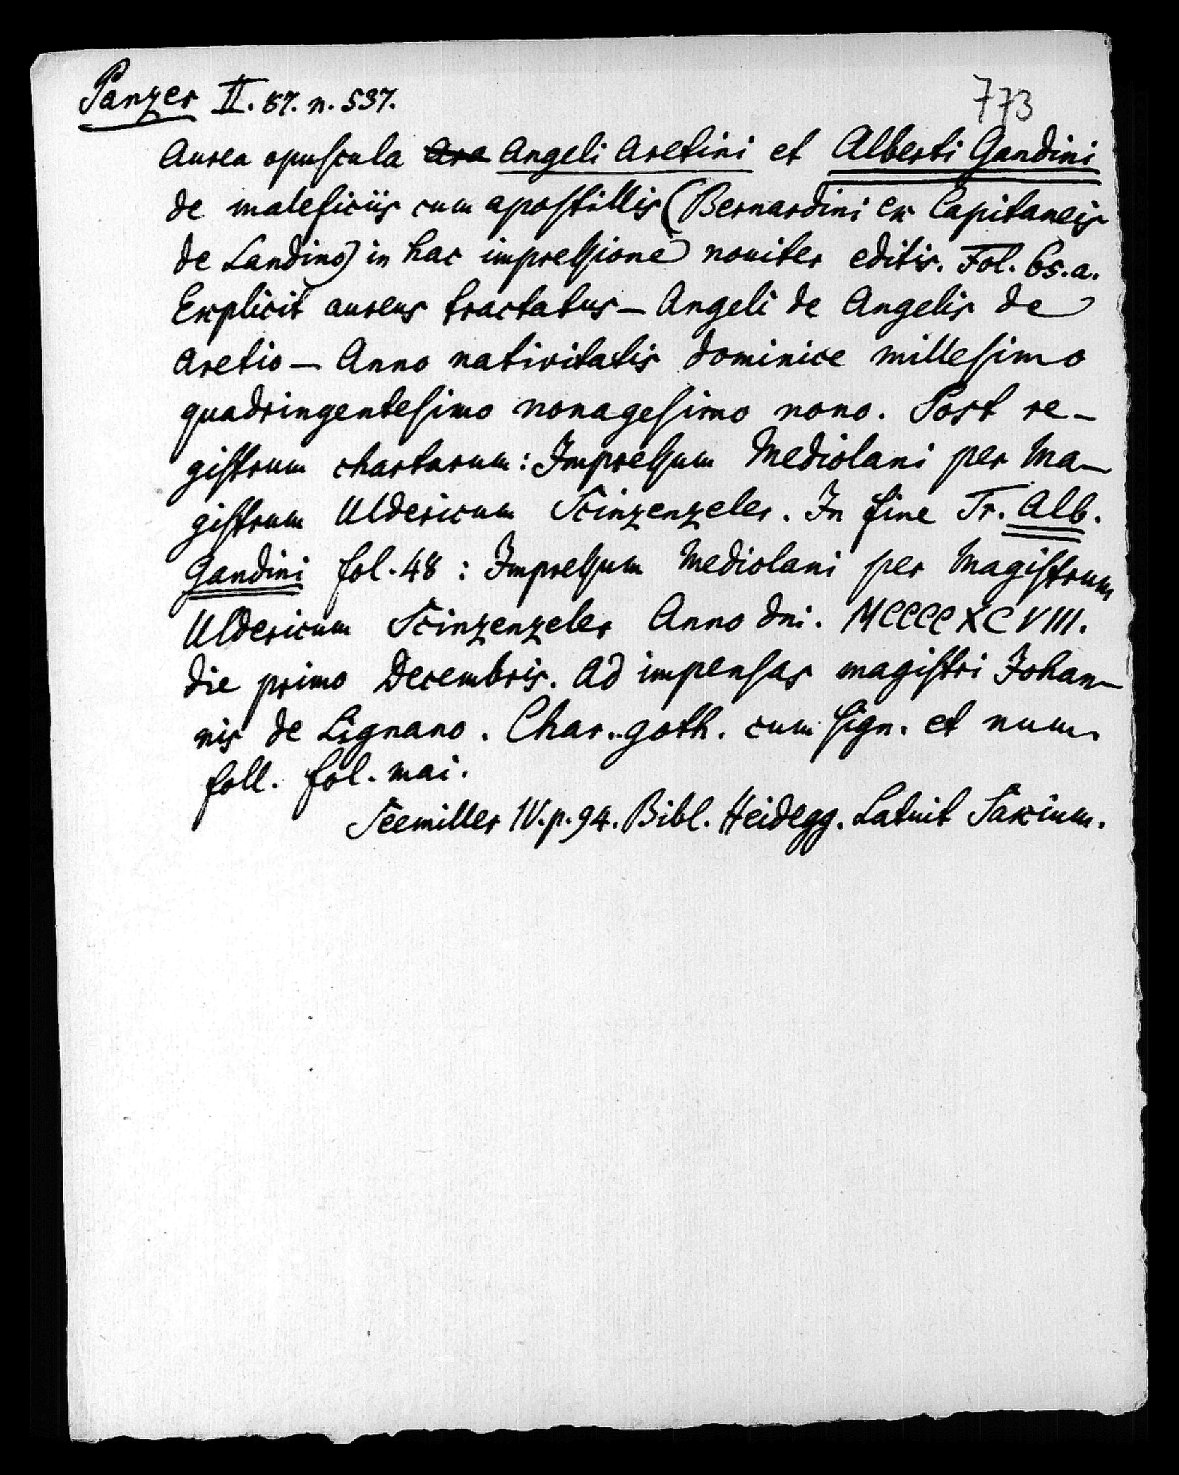 Panzer II. 87. n. 537.
773
Aurea opuscula Ara Angeli Aretini et Alberti Gandini
de maleficiis cum apostillis (Bernardini ex Capitaneis
de Landino) in hac impressione noviter editis. Fol. 65. a.
Explicit aureus tractatus — Angeli de Angelis de
Aretio — Anno nativitatis dominice millesimo
quadringentesimo nonagesimo nono. Post re-
gistrum chartarum: Impressum Mediolani per Ma-
gistrum Uldericum Scinzenzeler. In fine Tr. Alb.
Gandini fol. 48: Impressum Mediolani per Magistrum
Uldericum Scinzenzeler Anno dni. MCCCCXCVIII.
die primo Decembris. Ad impensas magistri Johan-
nis de Lignano. Char. goth. cum sign. et num.
foll. fol. mai.
Seemiller IV. p. 94. Bibl. Heidegg. Latuit Saxium.